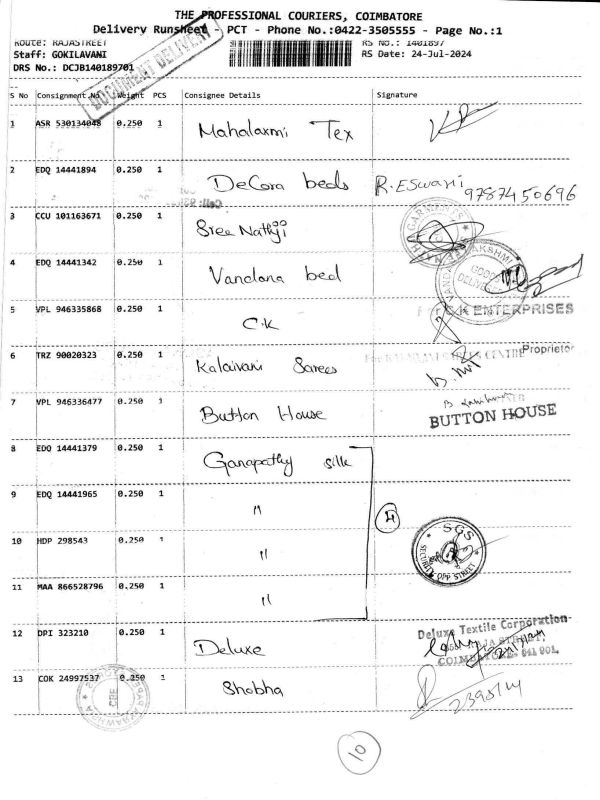 THE PROFESSIONAL COURIERS, COIMBATORE
Delivery Runsheet - PCT - Phone No.:0422-3505555 - Page No.:1
Route: RAJASTREET RS No.: 1401897
Staff: GOKILAVANI RS Date: 24-Jul-2024
DRS No.: DCJB140189701
DOCUMENT DELIVERY
S No Consignment No Weight PCS Consignee Details Signature
1 ASR 530134048 0.250 1 Mahalaxmi Tex
2 EDQ 14441894 0.250 1 DeCora beds R. ESwari 9787450696
3 CCU 101163671 0.250 1 Sree Nathji
4 EDQ 14441342 0.250 1 Vandana bed
5 VPL 946335868 0.250 1 C.K
For C.K ENTERPRISES
Proprietor
6 TRZ 90020323 0.250 1 Kalaivani Sarees
7 VPL 946336477 0.250 1 Button House
BUTTON HOUSE
8 EDQ 14441379 0.250 1 Ganapathy silk
9 EDQ 14441965 0.250 1 "
4
10 HDP 298543 0.250 1 "
SGS
SECURITY
OPP STREET
11 MAA 866528796 0.250 1 "
12 DPI 323210 0.250 1 Deluxe
Deluxe Textile Corporation
RAJA STREET,
COIMBATORE - 641 001.
13 COK 24997537 0.250 1 Shobha
CBE
10